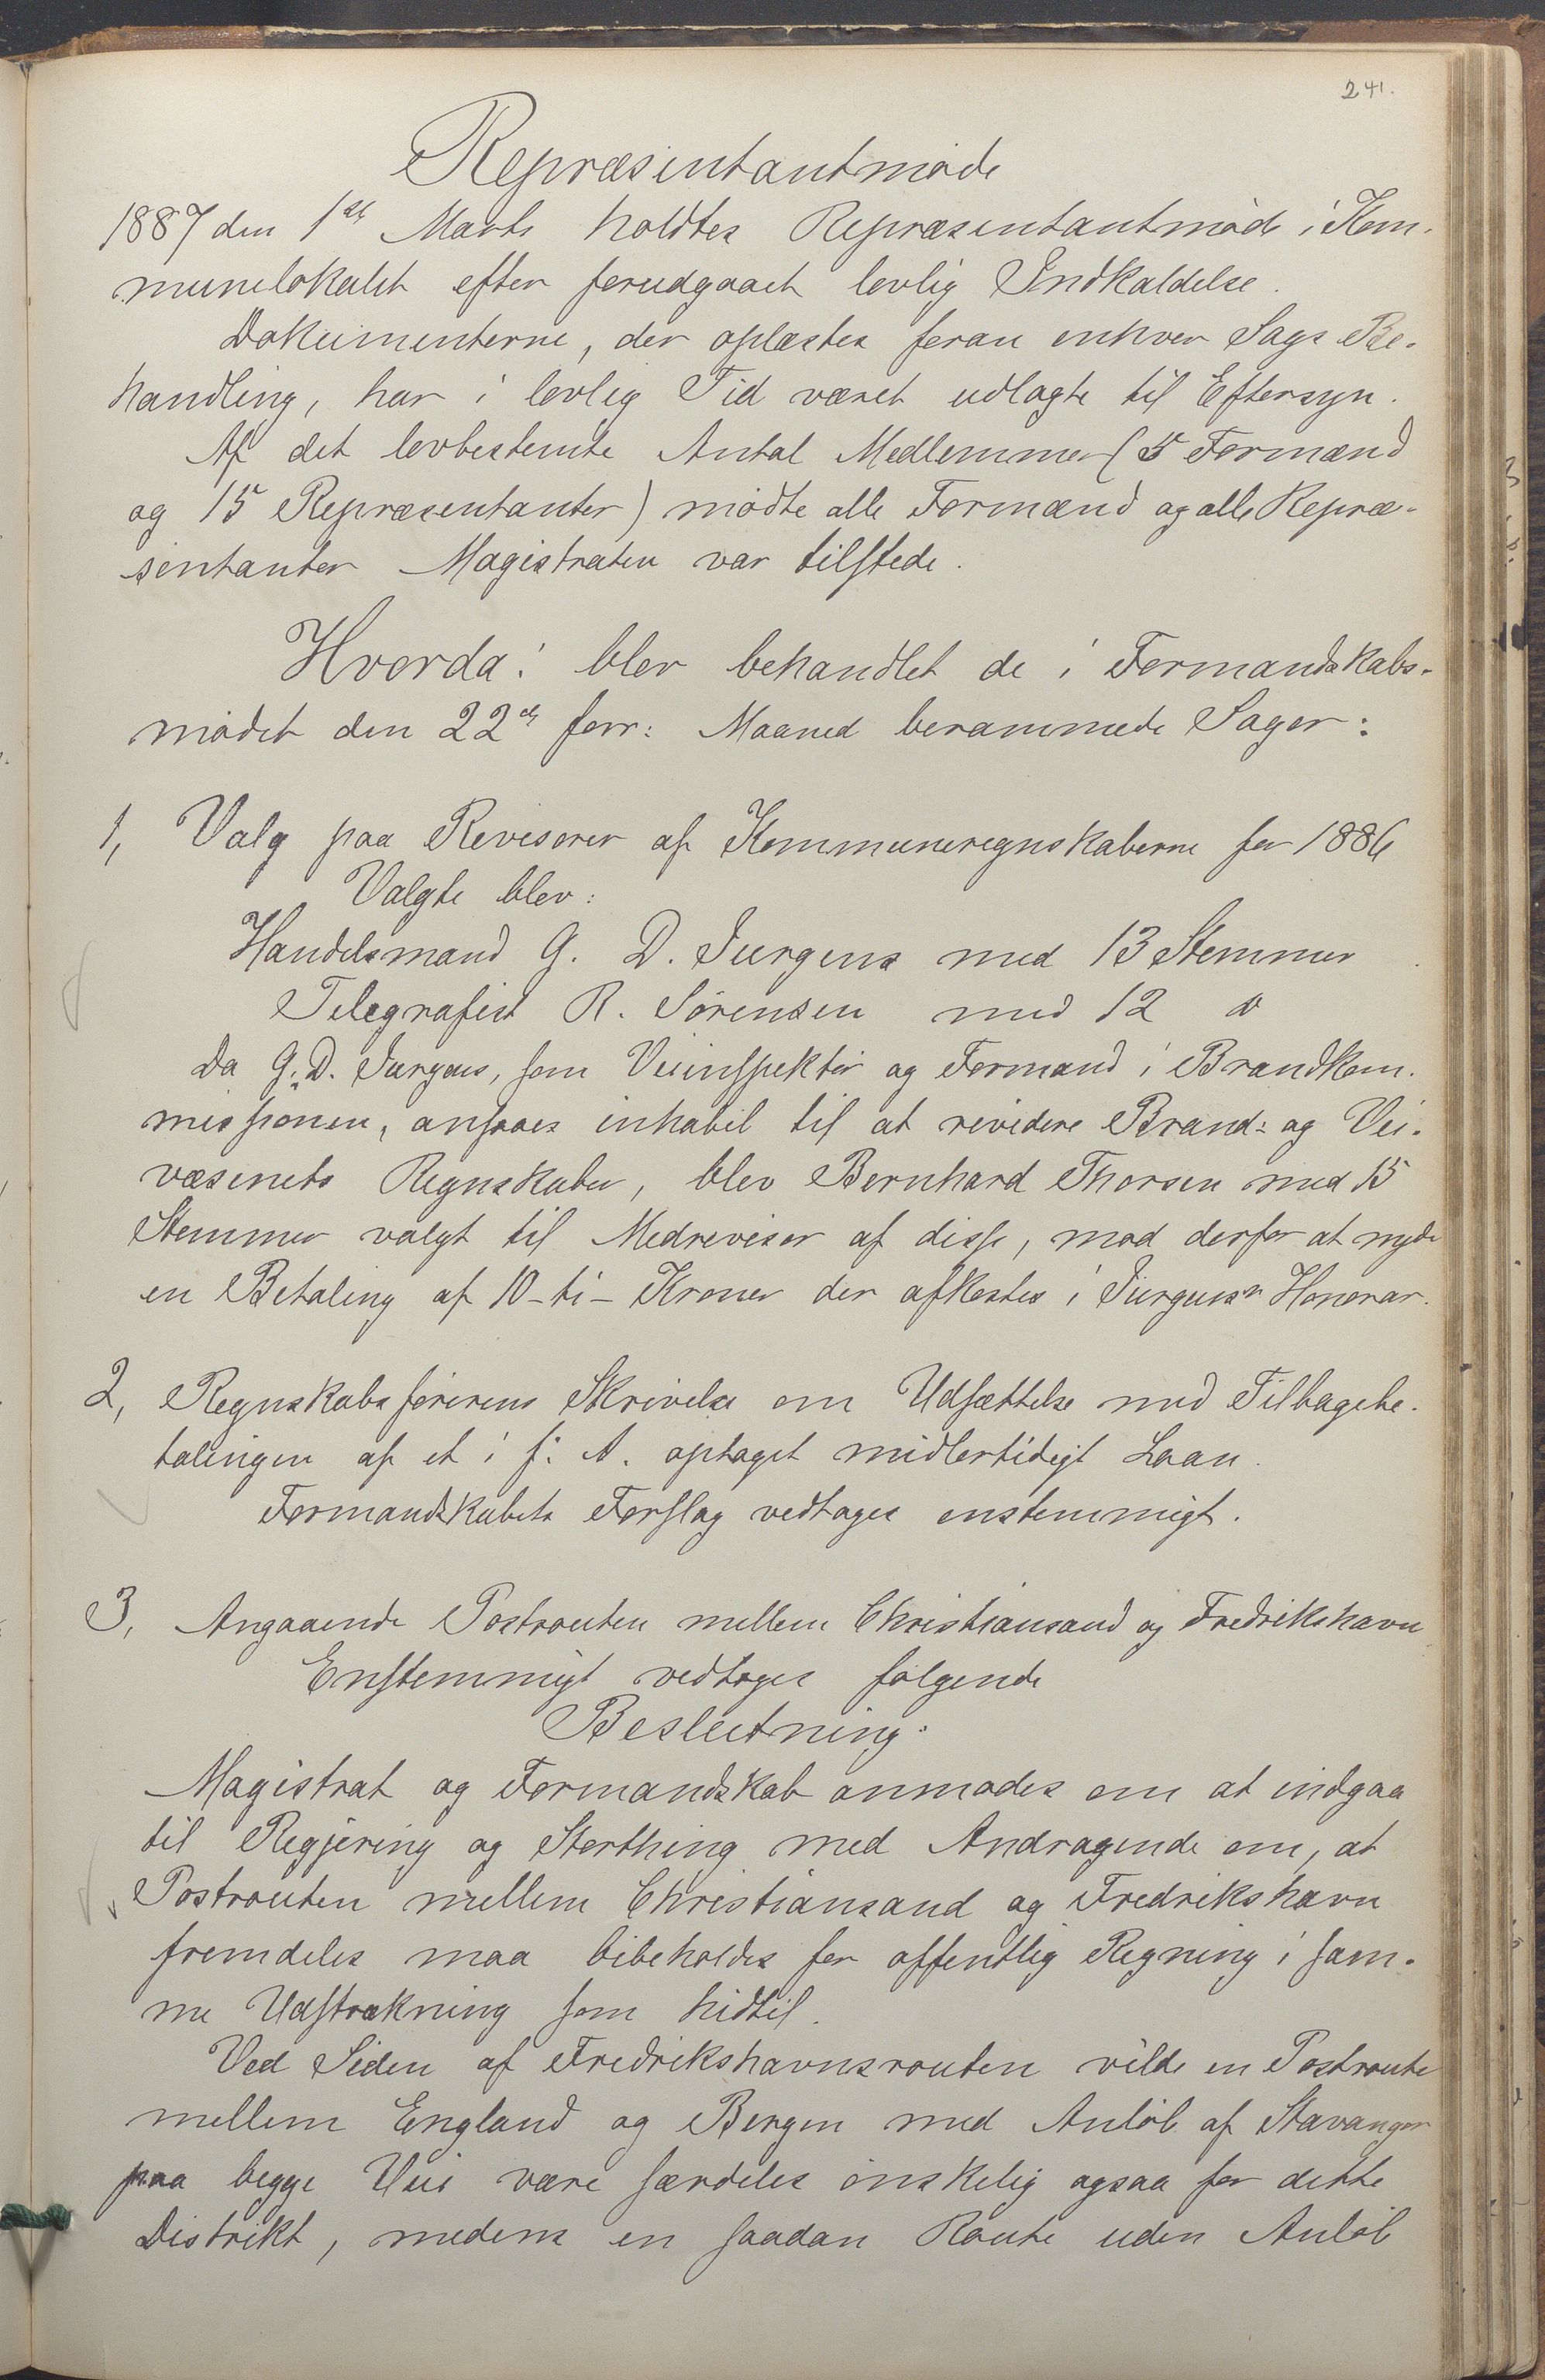 241.
Repræsentantmøde
1887 den 1ste Marts holdtes Repræsentantmøde i Kom-
munelokalet efter forudgaaet lovlig Indkaldelse.
Dokumenterne, der oplæstes foran enhver Sags Be-
handling, har i lovlig Tid været udlagte til Eftersyn.
Af det lovbestemte Antal Medlemmer (5 Formænd
og 15 Repræsentanter) mødte alle Formænd og alle Repræ-
sentanter Magistraten var tilstede.
Hvorda: blev behandlet de i Formandskabs-
mødet den 22de forr: Maaned berammede Sager:
1, Valg paa Revisorer af Kommuneregnskaberne for 1886
Valgte blev:
Handelsmand G. D. Jurgens med 13 Stemmer
Telegrafist R. Sørensen med 12 "
Da G. D. Jurgens, som Veiinspektør og Formand i Brandkom-
missionen, ansaaes inhabil til at revidere Brand- og Vei-
væsenets Regnskaber, blev Bernhard Thorsen med 15
Stemmer valgt til Medrevisor af disse, mod derfor at nyde
en Betaling af 10 - ti - Kroner der afkortes i Jurgens's Honorar.
2, Regnskabsførerens Skrivelse om Udsættelse med Tilbagebe-
talingen af et i f. A. optaget midlertidigt Laan.
Formandskabets Forslag vedtages enstemmigt.
3, Angaaende Postrouten mellem Christiansand og Fredrikshavn
Enstemmigt vedtages følgende
Beslutning:
Magistrat og Formandskab anmodes om at indgaa
til Regjering og Storthing med Andragende om, at
Postrouten mellem Christiansand og Fredrikshavn
fremdeles maa bibeholdes for offentlig Regning i sam-
me Udstrækning som hidtil.
Ved Siden af Fredrikshavnsrouten vilde en Postroute
mellem England og Bergen med Anløb af Stavanger
paa begge Veie være særdeles ønskelig ogsaa for dette
Distrikt, medens en saadan Route uden Anløb